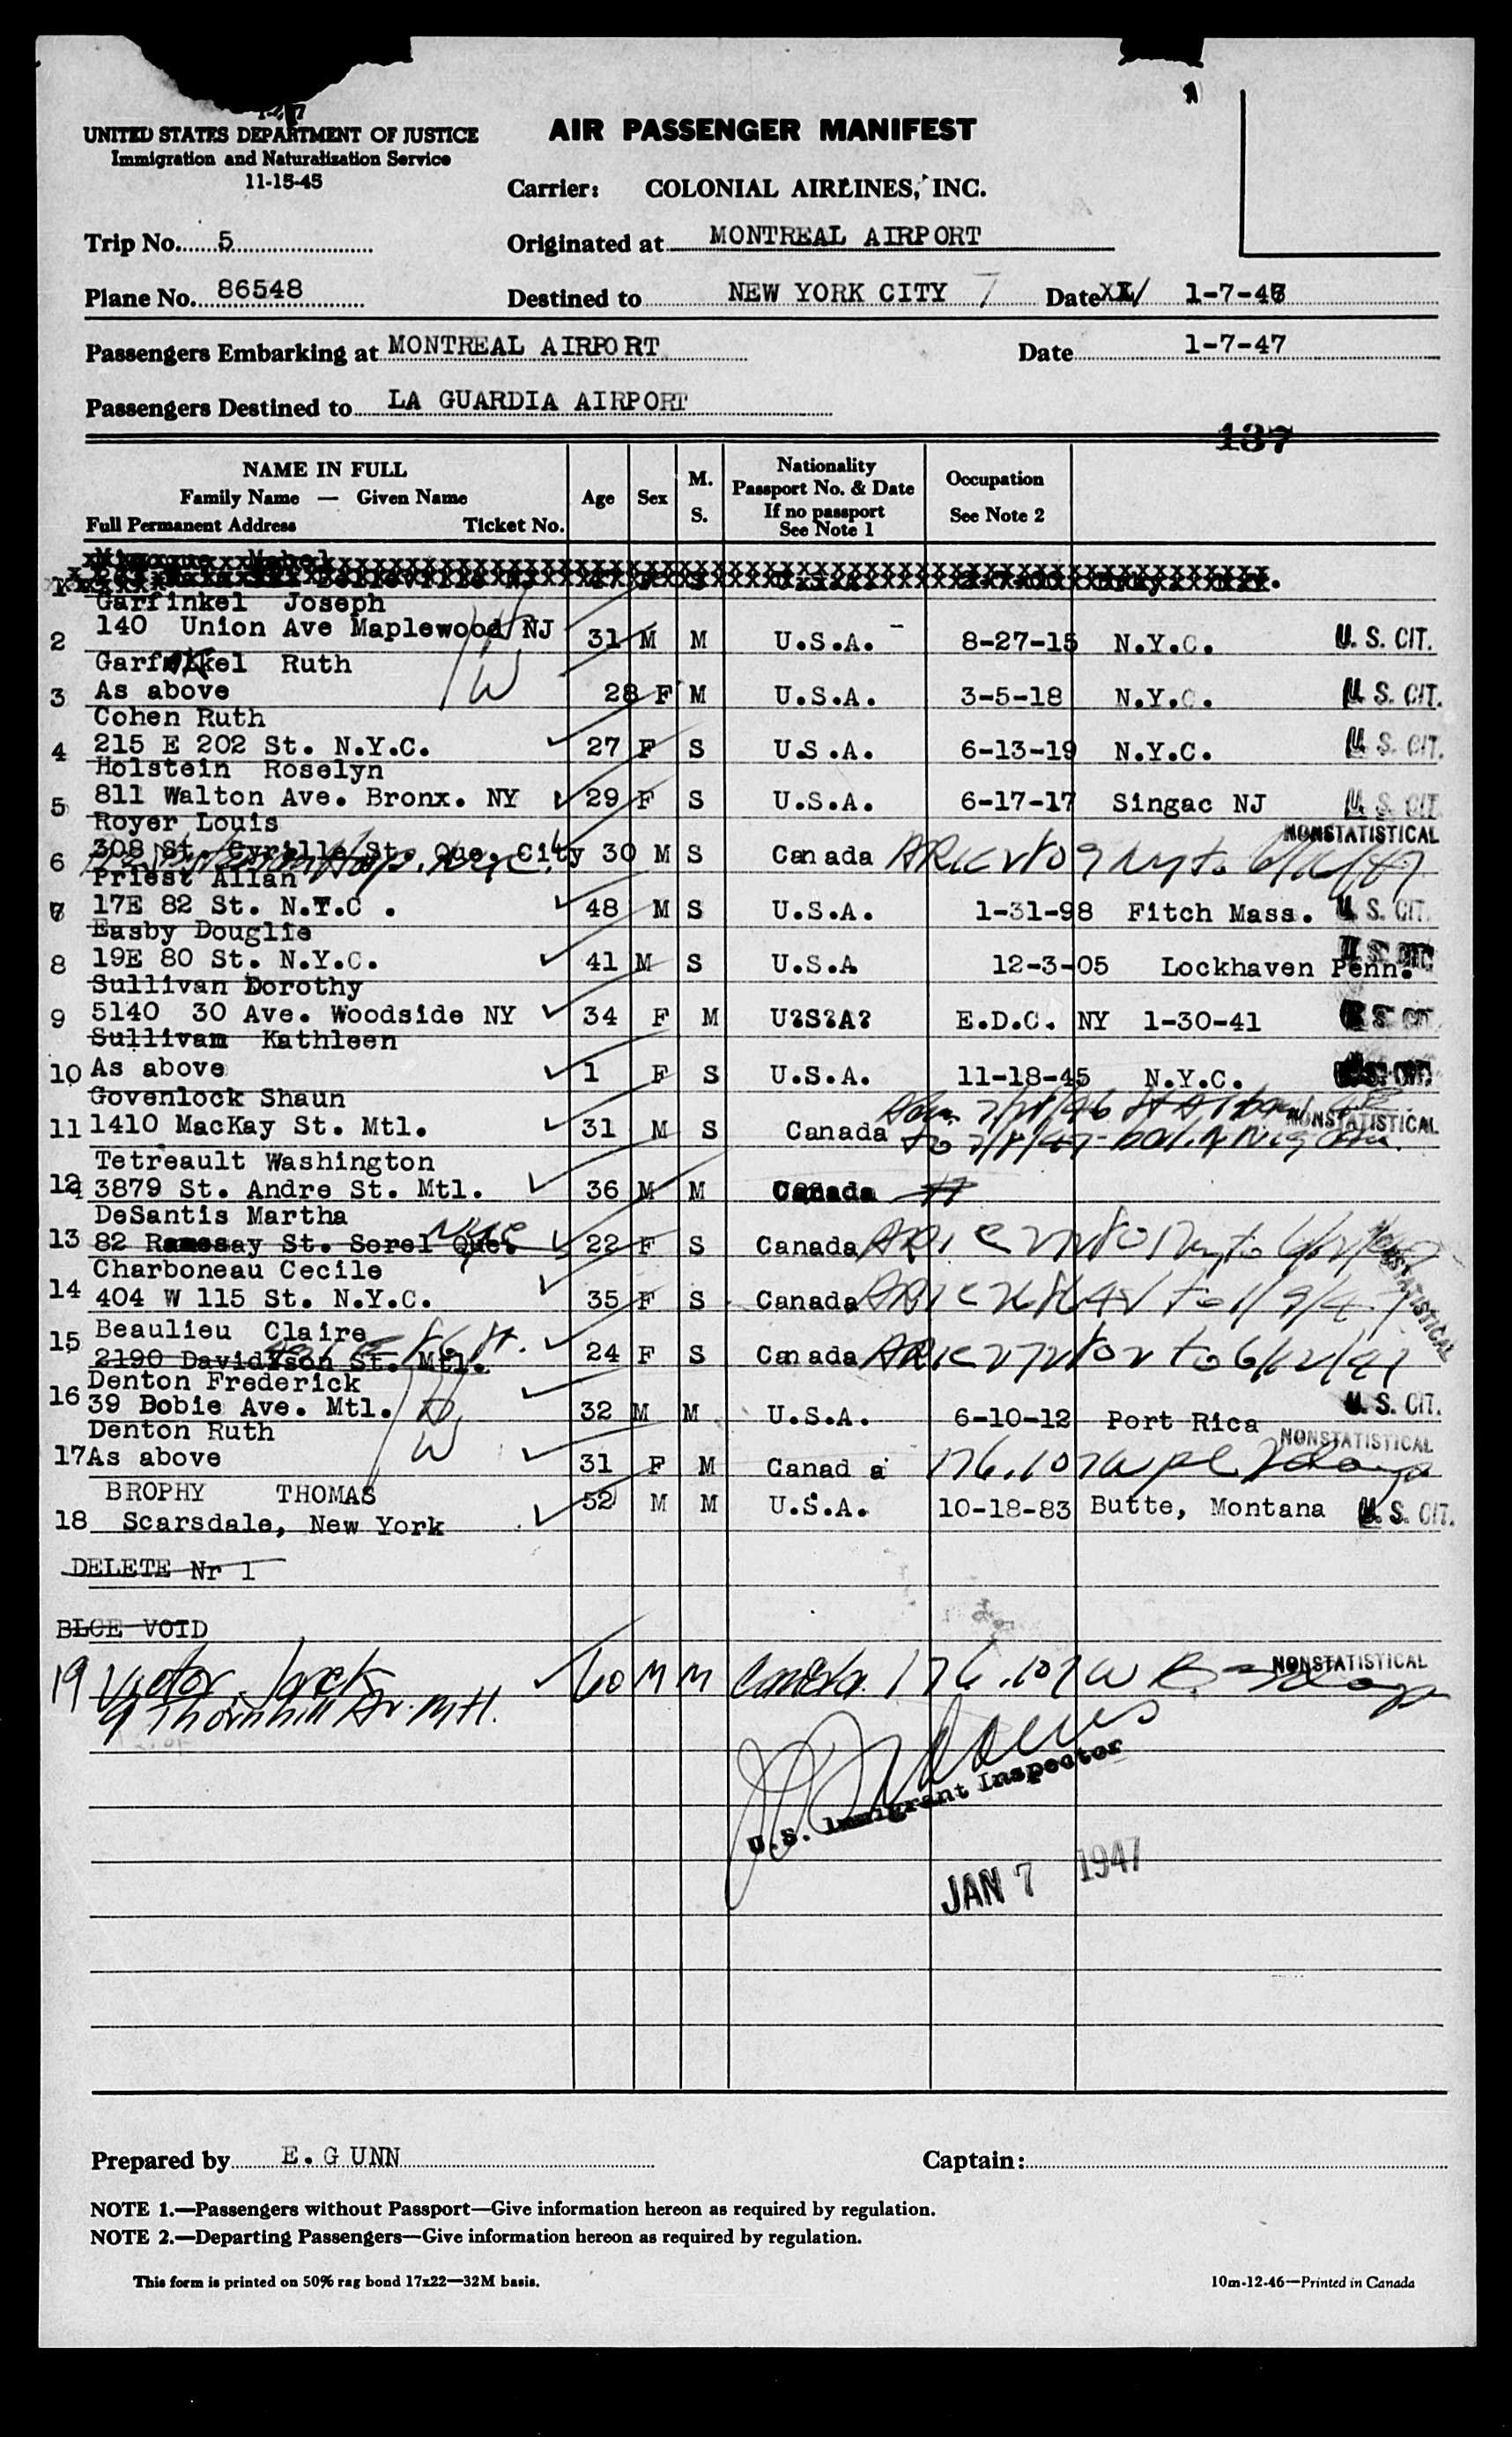 UNITED STATES DEPARTMENT OF JUSTICE
Immigration and Naturalization Service
11-15-45
AIR PASSENGER MANIFEST
Carrier: COLONIAL AIRLINES, INC.
Trip No. 5
Originated at MONTREAL AIRPORT
Plane No. 86548
Destined to NEW YORK CITY
Date 1-7-47
Passengers Embarking at MONTREAL AIRPORT
Date 1-7-47
Passengers Destined to LA GUARDIA AIRPORT
137
NAME IN FULL
Family Name — Given Name
Full Permanent Address Ticket No.
Age Sex M. S.
Nationality
Passport No. & Date
If no passport
See Note 1
Occupation
See Note 2
1
Garfinkel Joseph
2 140 Union Ave Maplewood NJ 31 M M U.S.A. 8-27-15 N.Y.C. U. S. CIT.
H
Garfinkel Ruth
3 As above W 28 F M U.S.A. 3-5-18 N.Y.C. U. S. CIT.
Cohen Ruth
4 215 E 202 St. N.Y.C. 27 F S U.S.A. 6-13-19 N.Y.C. U. S. CIT.
Holstein Roselyn
5 811 Walton Ave. Bronx. NY 29 F S U.S.A. 6-17-17 Singac NJ U. S. CIT
Royer Louis NONSTATISTICAL
6 308 St. Cyrille St. Que. City 30 M S Canada
Priest Allan
7 17E 82 St. N.Y.C . 48 M S U.S.A. 1-31-98 Fitch Mass. U. S. CIT.
Easby Douglie
8 19E 80 St. N.Y.C. 41 M S U.S.A 12-3-05 Lockhaven Penn.
Sullivan Dorothy
9 5140 30 Ave. Woodside NY 34 F M U?S?A? E.D.C. NY 1-30-41 U. S. CIT.
Sullivan Kathleen
10 As above 1 F S U.S.A. 11-18-45 N.Y.C. U. S. CIT.
Govenlock Shaun
11 1410 MacKay St. Mtl. 31 M S Canada NONSTATISTICAL
Tetreault Washington
12 3879 St. Andre St. Mtl. 36 M M Canada
DeSantis Martha
13 82 Ramesay St. Sorel Que. 22 F S Canada NONSTATISTICAL
NYC
Charboneau Cecile
14 404 W 115 St. N.Y.C. 35 F S Canada NONSTATISTICAL
Beaulieu Claire
15 2190 Davidson St. Mtl. 24 F S Canada
Denton Frederick
16 39 Dobie Ave. Mtl. H 32 M M U.S.A. 6-10-12 Port Rica U. S. CIT.
Denton Ruth NONSTATISTICAL
17 As above W 31 F M Canada 176.107
BROPHY THOMAS
18 Scarsdale, New York 52 M M U.S.A. 10-18-83 Butte, Montana U. S. CIT.
DELETE Nr 1
BLCE VOID
19 Victor, Jack 60 M M Canada 176.107 NONSTATISTICAL
9 Thornhill Av. Mtl.
U.S. Immigrant Inspector
JAN 7 1947
Prepared by E. GUNN
Captain:
NOTE 1.—Passengers without Passport—Give information hereon as required by regulation.
NOTE 2.—Departing Passengers—Give information hereon as required by regulation.
This form is printed on 50% rag bond 17x22—32M basis.
10m-12-46—Printed in Canada